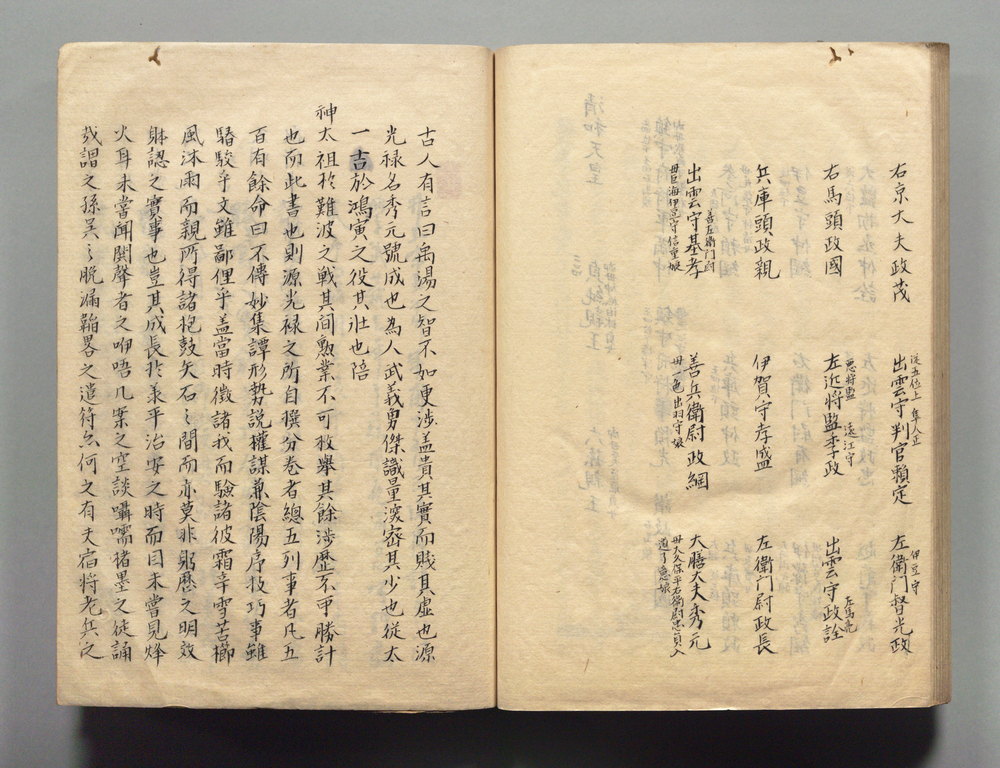 右京大夫政茂
従五位上 隼人正
出雲守判官頼定
伊豆守
左衛門督光政
右馬頭政國
左近将監季政
遠江守
出雲守政詮
兵庫頭政親
伊賀守孝盛
左衛門尉政長
善左衛門尉
出雲守基孝
毋巨海伊豆守信重娘
善兵衛尉政綱
毋一色出羽守娘
大膳大夫秀元
毋大久保平右衛尉忠員入
古人有言曰禹湯之智不如更渉蓋貴其實而賤其虚也源
光禄名秀元號成也為人武義勇傑識量濅察其少也従太
一古於鴻寅之役其壮也陪
神太祖於難波之戦其間勲業不可枚舉其餘渉歴不可勝計
也而此書也則源光禄之所自撰分卷者總五列事者凡五
百有餘命曰不傳妙集譚形勢説權謀兼陰陽序技巧事雖
駱駁乎文雖鄙俚乎盖當時徴諸我而驗諸彼霜辛雪苦櫛
風沐雨而親所得諸枹鼓矢石之間而亦莫非躬歴之明效
躰認之實事也豈其成長於承平治安之時而目未嘗見烽
火耳未嘗聞鬨聲者之咿唔几案之空談囁嚅楮墨之徒誦
哉謂之孫吴之脱漏韜畧之遺符亦何之有夫宿将老兵之